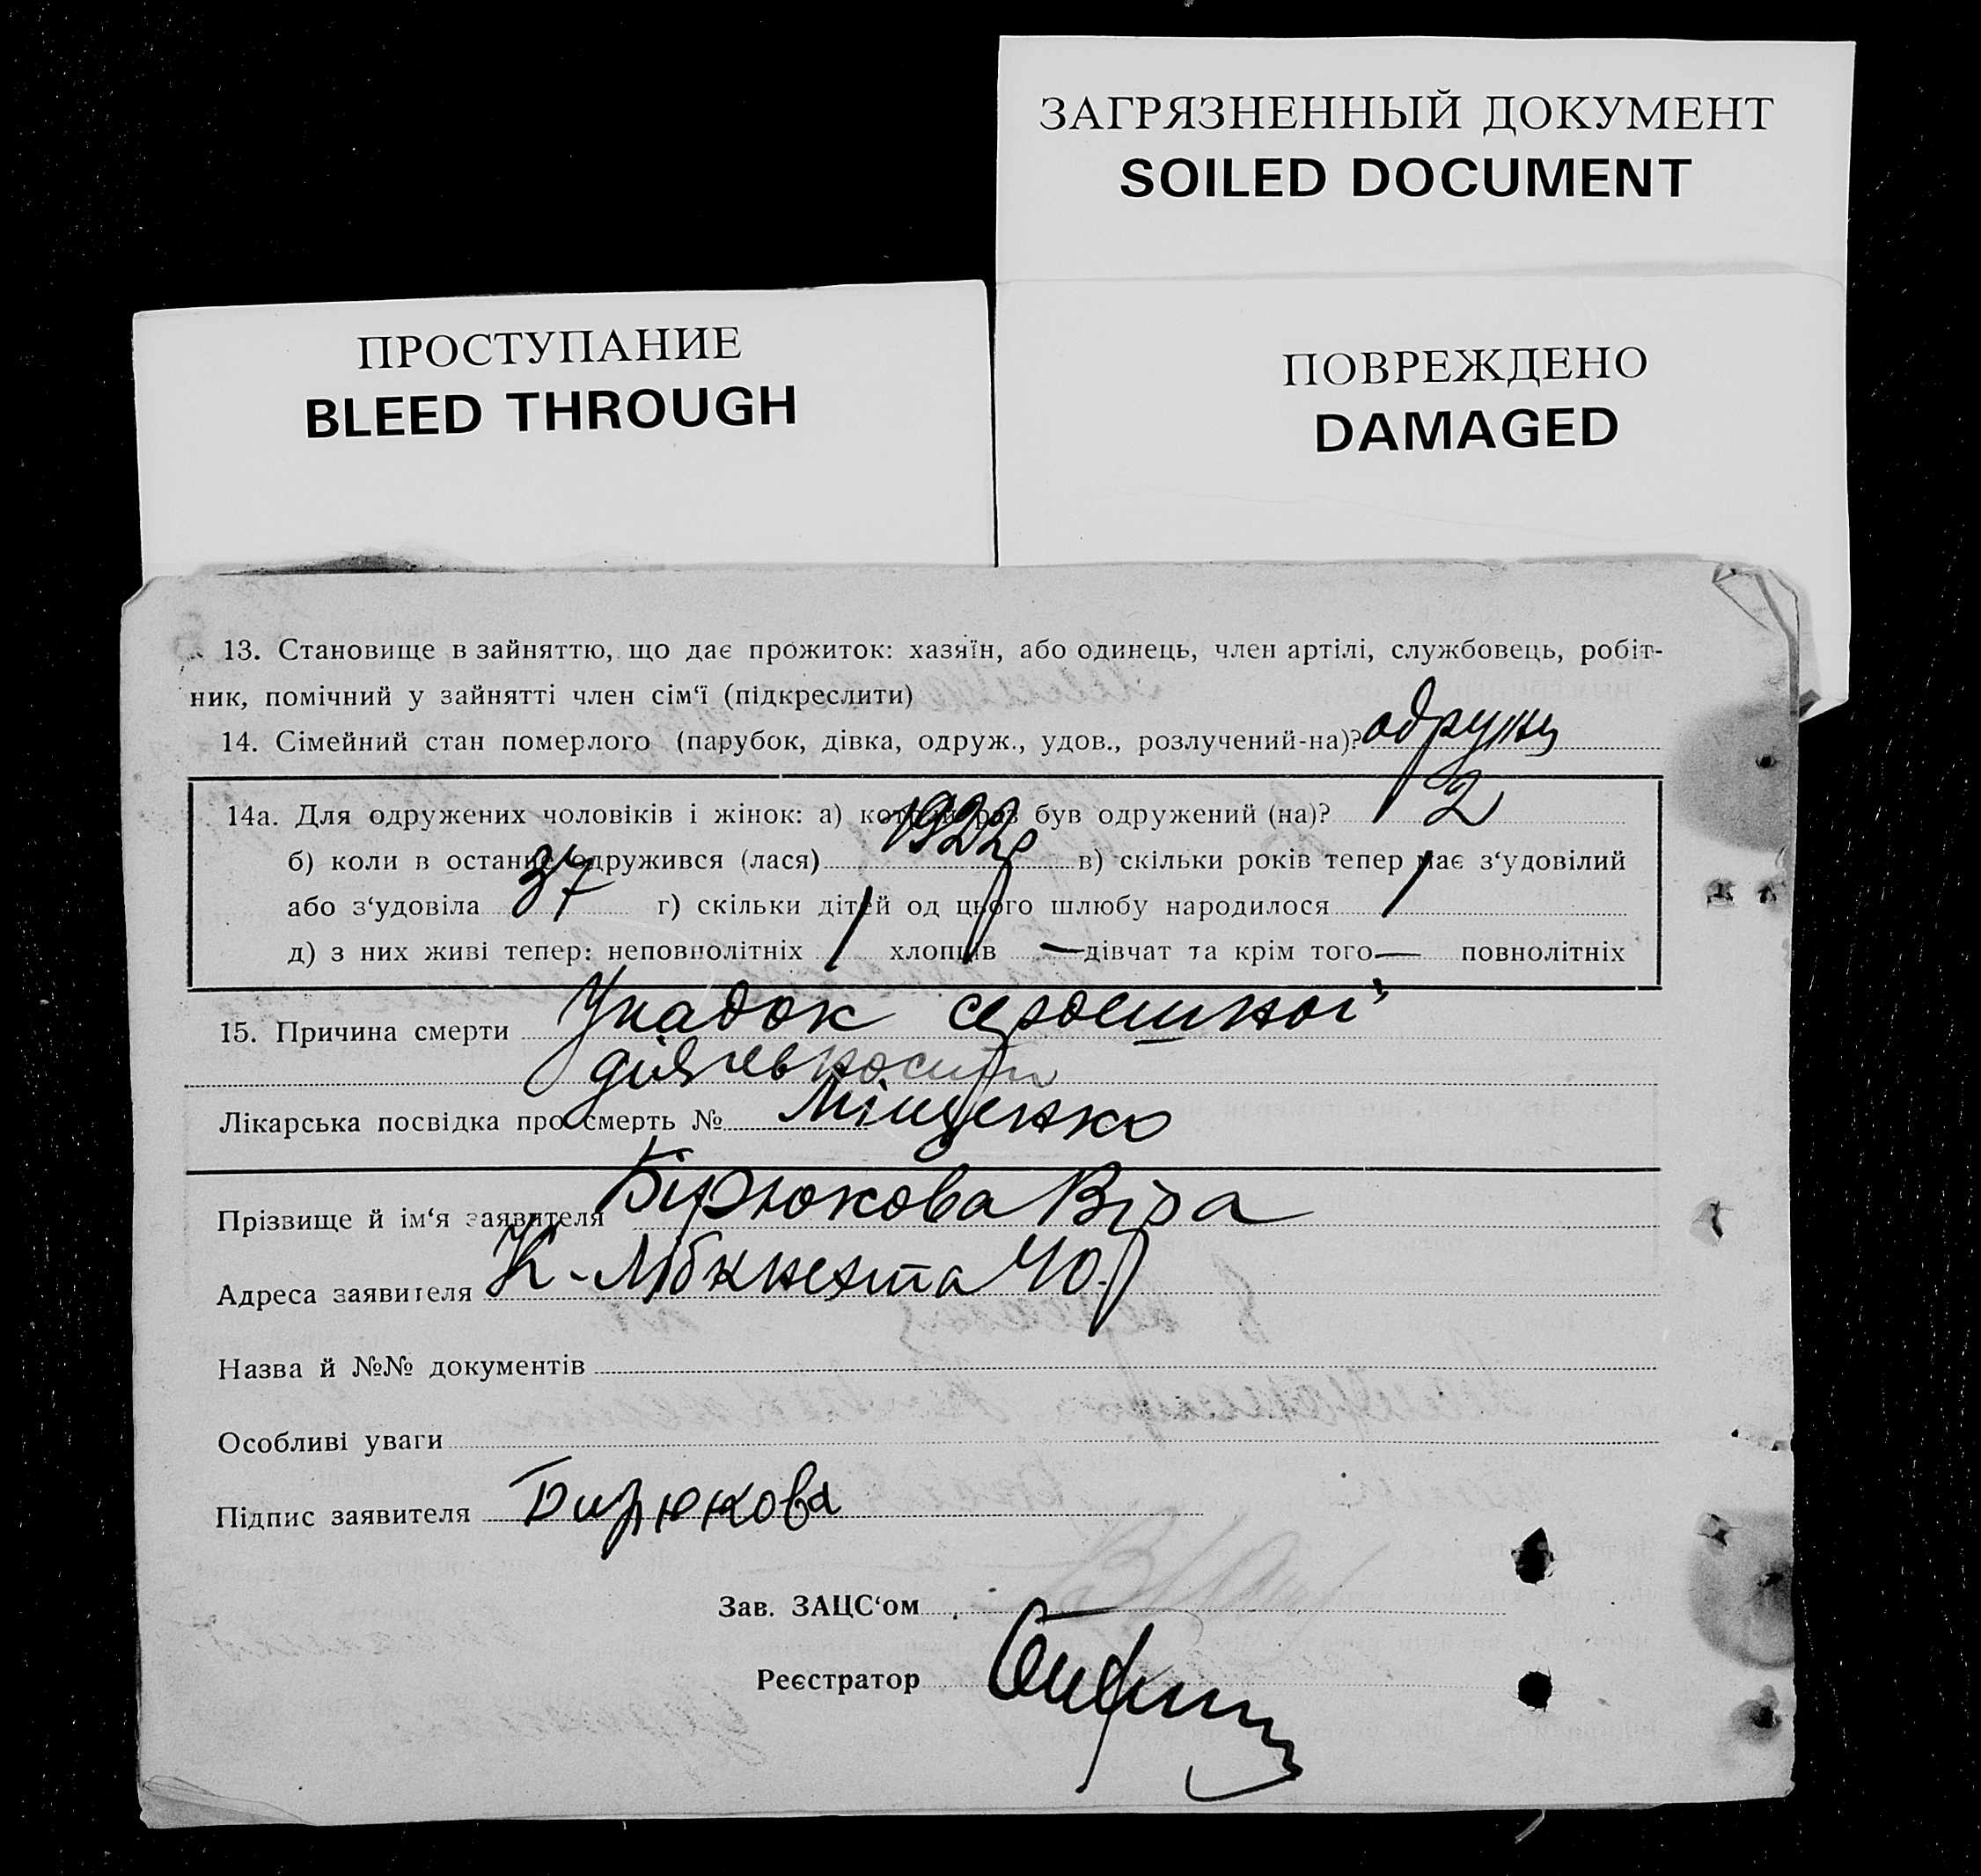 ЗАГРЯЗНЕННЫЙ ДОКУМЕНТ
SOILED DOCUMENT
ПРОСТУПАНИЕ
BLEED THROUGH
ПОВРЕЖДЕНО
DAMAGED
13. Становище в зайняттю, що дає прожиток: хазяїн, або одинець, член артілі, службовець, робіт-
ник, помічний у зайнятті член сім'ї (підкреслити)
14. Сімейний стан померлого (парубок, дівка, одруж., удов., розлучений-на)? одруж
14а. Для одружених чоловіків і жінок: а) котрий раз був одружений (на)? 2
б) коли в останнє одружився (лася) 1922р в) скільки років тепер має з'удовілий
або з'удовіла 37 г) скільки дітей од цього шлюбу народилося 1
д) з них живі тепер: неповнолітніх 1 хлопців — дівчат та крім того — повнолітніх
15. Причина смерти Упадок сердешної
діяльности
Лікарська посвідка про смерть № Міщенко
Прізвище й ім'я заявителя Бірюкова Віра
Адреса заявителя К-Лібкнехта 40
Назва й №№ документів
Особливі уваги
Підпис заявителя Бирюкова
Зав. ЗАЦС'ом
Реєстратор